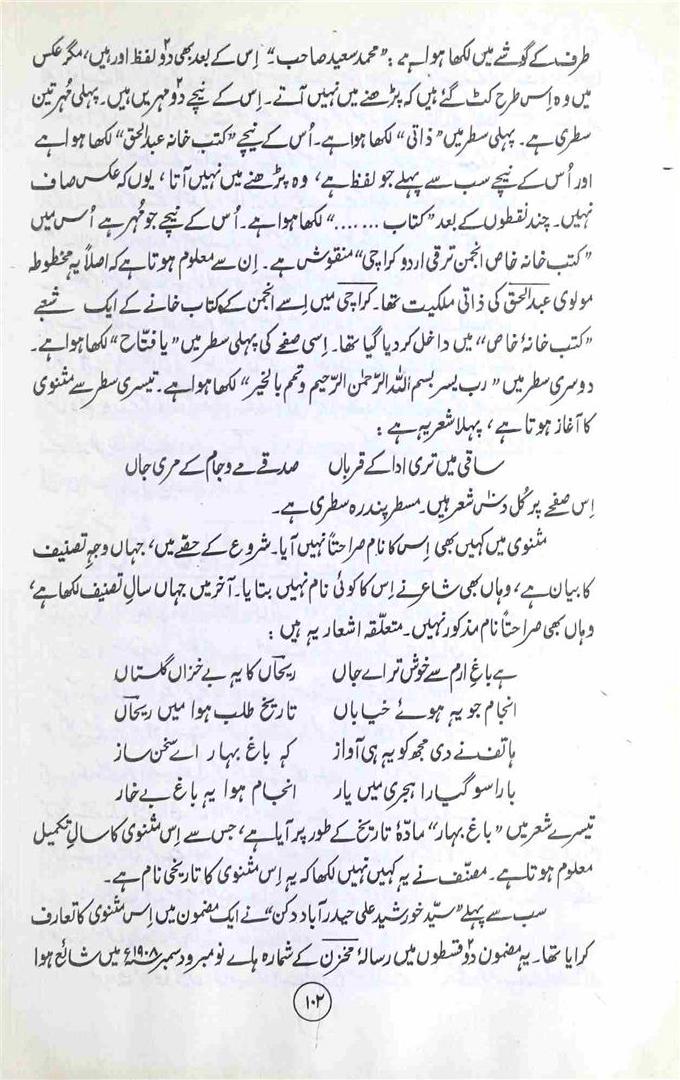 طرف کے گوشے میں لکھا ہوا ہے: ”محمد سعید صاحب۔“ اِس کے بعد بھی دو۲ لفظ اور ہیں، مگر عکس
میں وہ اِس طرح کٹ گئے ہیں کہ پڑھنے میں نہیں آتے۔ اِس کے نیچے دو۲ مہریں ہیں۔ پہلی مُہر تین
سطری ہے۔ پہلی سطر میں ”ذاتی“ لکھا ہوا ہے۔ اُس کے نیچے ”کتب خانہ عبدالحق“ لکھا ہوا ہے
اور اُس کے نیچے سب سے پہلے جو لفظ ہے، وہ پڑھنے میں نہیں آتا، یوں کہ عکس صاف
نہیں۔ چند نقطوں کے بعد ”کتاب .......“ لکھا ہوا ہے۔ اُس کے نیچے جو مُہر ہے اُس میں
”کتب خانہ خاص انجمن ترقی اردو کراچی“ منقوش ہے۔ اِن سے معلوم ہوتا ہے کہ اصلاً یہ مخطوطہ
مولوی عبدالحق کی ذاتی ملکیت تھا۔ کراچی میں اِسے انجمن کے کتاب خانے کے ایک شعبے
”کتب خانۂ خاص“ میں داخل کر دیا گیا تھا۔ اِسی صفحے کی پہلی سطر میں ”یا فتّاح“ لکھا ہوا ہے۔
دوسری سطر میں ”رب یسر بسم اللہ الرّحمن الرّحیم وتمم بالخیر“ لکھا ہوا ہے۔ تیسری سطر سے مثنوی
کا آغاز ہوتا ہے، پہلا شعر یہ ہے:
ساقی میں تری ادا کے قرباں صدقے مے و جام کے مری جاں
اِس صفحے پر کُل دس۱۰ شعر ہیں۔ مسطر پندرہ سطری ہے۔
مثنوی میں کہیں بھی اِس کا نام صراحتاً نہیں آیا۔ شروع کے حصّے میں، جہاں وجہِ تصنیف
کا بیان ہے، وہاں بھی شاعر نے اِس کا کوئی نام نہیں بتایا۔ آخر میں جہاں سالِ تصنیف لکھا ہے،
وہاں بھی صراحتاً نام مذکور نہیں۔ متعلّقہ اشعار یہ ہیں:
ہے باغِ ارم سے خوش تر اے جاں ریحاں کا یہ بے خزاں گلستاں
انجام جو یہ ہوئے خیاباں تاریخ طلب ہوا میں ریحاں
ہاتف نے دی مجھ کو یہ ہی آواز کہ باغ بہار اے سخن ساز
بارا سو گیارا ہجری میں یار انجام ہوا یہ باغ بے خار
تیسرے شعر میں ”باغ بہار“ مادّۂ تاریخ کے طور پر آیا ہے، جس سے اِس مثنوی کا سالِ تکمیل
معلوم ہوتا ہے۔ مصنّف نے یہ کہیں نہیں لکھا کہ یہ اِس مثنوی کا تاریخی نام ہے۔
سب سے پہلے ”سیّد خورشید علی حیدرآباد دکن“ نے ایک مضمون میں اِس مثنوی کا تعارف
کرایا تھا۔ یہ مضمون دو۲ قسطوں میں رسالۂ مخزن کے شمارہ ہاے نومبر و دسمبر ۱۹۰۸ء میں شائع ہوا
۱۰۲